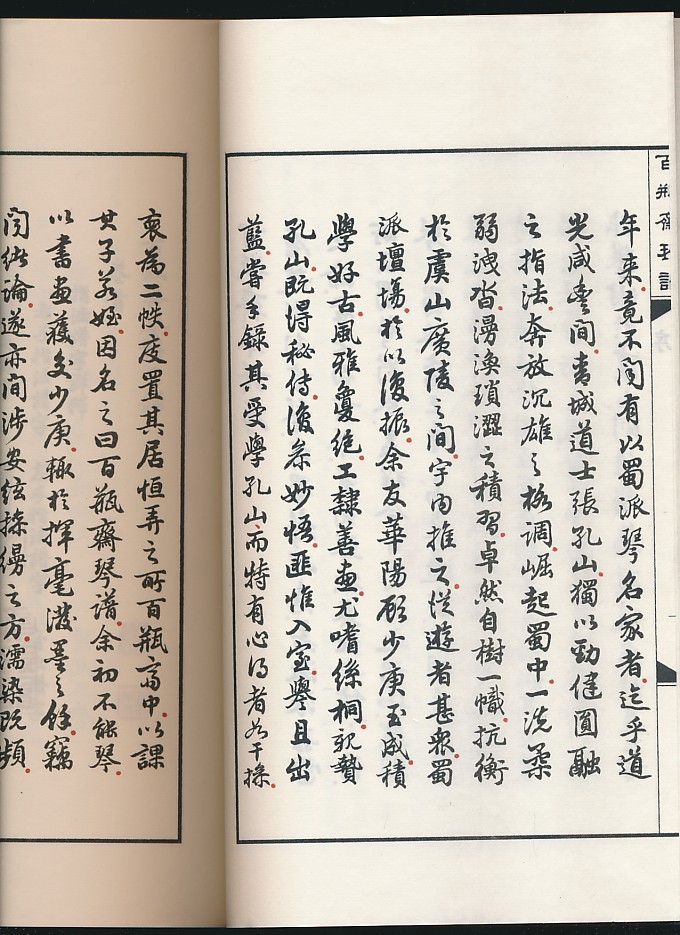 百瓶齋琴譜
序
年来竟不闻有以蜀派琴名家者迄乎道
光咸豐间青城道士張孔山獨以勁健圓融
之指法奔放沉雄之格調崛起蜀中一洗柔
弱洩沓漫渙瑣澀之積習卓然自樹一幟抗衡
於虞山廣陵之间宇内推之從遊者甚衆蜀
派壇場於以復振余友華陽顾少庚玉成積
學好古風雅夐絕工隸善畫尤嗜絲桐親贄
孔山既得秘傳復叅妙悟匪惟入室譽且出
藍嘗手錄其受學孔山而特有心得者若干操
裒為二帙庋置其居恒弄之所百瓶斎中以課
其子若姪因名之曰百瓶齋琴譜余初不能琴
以書画獲交少庚輒於揮毫潑墨之餘竊
闻緒論遂亦间涉安絃操縵之方濡染既頻